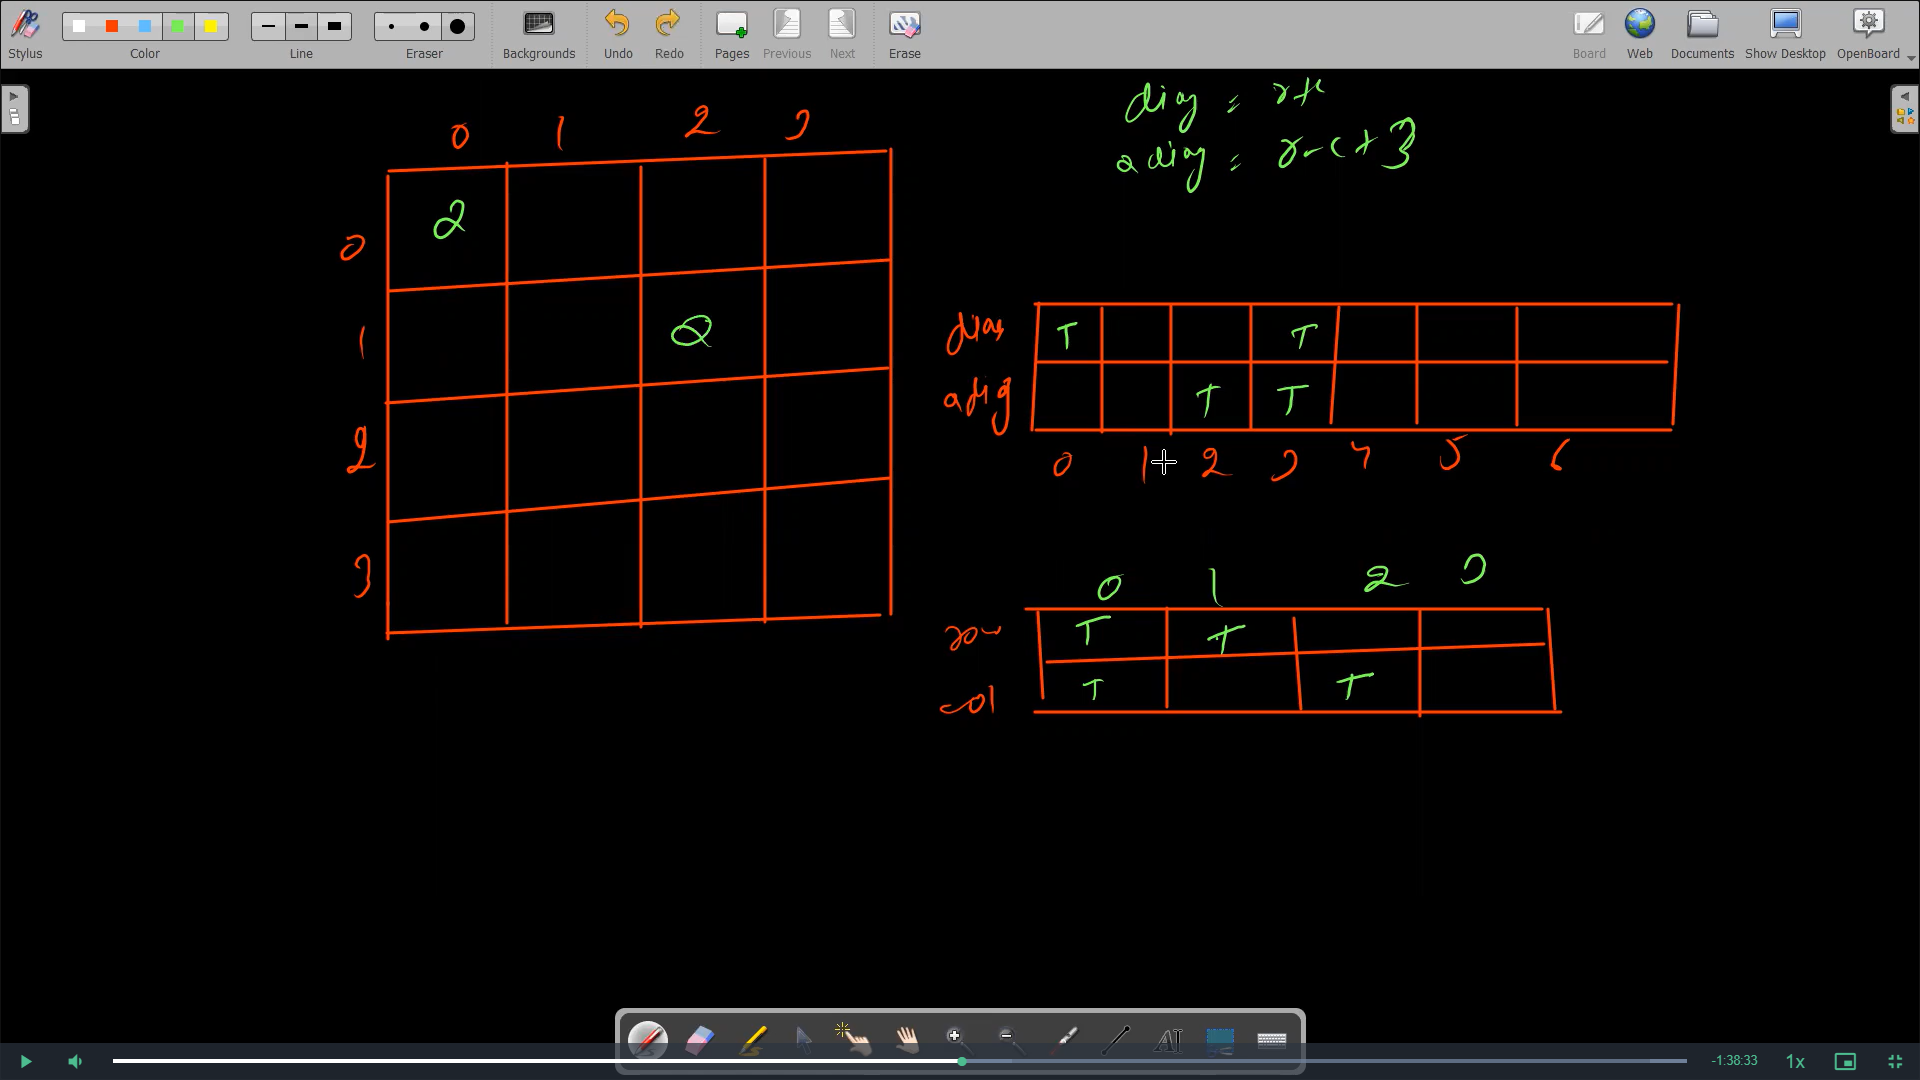 Stylus Color Line Eraser Backgrounds Undo Redo Pages Previous Next Erase Board Web Documents Show Desktop OpenBoard
diag = r+c
adiag = r-c+3
0 1 2 3
0 Q
1 Q
2
3
diag T T
adig T T
0 1 2 3 4 5 6
0 1 2 3
row T T
col T T
-1:38:33 1x